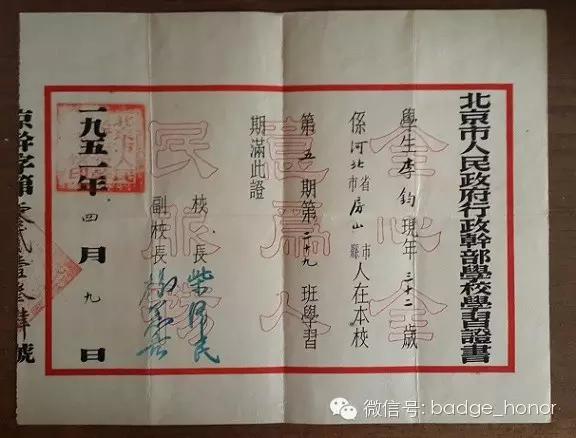 北京市人民政府行政幹部學校學習證書
學生李鈞現年三十二歲
係河北省市房山市縣人在本校
第五期第二十九班學習
期滿此證
校長柴澤民
副校長
一九五一年四月九日
京幹字第號
全心全
意爲人
民服務
微信号: badge_honor